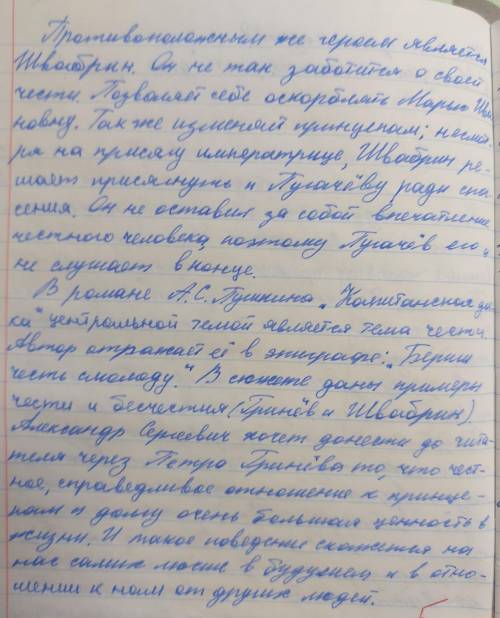 Противоположным же героем является
Швабрин. Он не так заботится о своей
чести. Позваляет себе оскорблять Марью Ива
новну. Так же изменяет принцепам; несмот
ря на присягу императрице, Швабрин ре-
шает присягнуть и Пугачёву ради спа
сения. Он не оставил за собой впечатление
честного человека, поэтому Пугачёв его
не слушает в конце.
В романе А.С. Пушкина „Капитанская доч
ка" центральной темой является тема чести.
Автор отражает её в эпиграфе: „Береги
честь смолоду." В сюжете даны примеры
чести и бесчестия (Гринёв и Швабрин).
Александр Сергеевич хочет донести до чита-
теля через Петра Гринёва то, что чест-
ное, справедливое отношение к принце-
пам и долгу очень большая ценность в
жизни. И такое поведение скажется на
нас самих в будущем и в отно-
шении к нам от других людей.